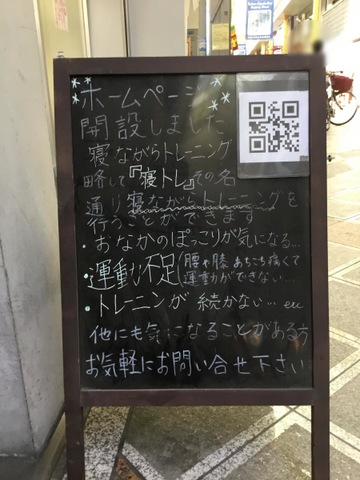 ホームページ
開設しました
寝ながらトレーニング
略して『寝トレ』その名
通り寝ながらトレーニングを
行うことができます
・おなかのぽっこりが気になる…
・運動不足(腰や膝あちこち痛くて
運動ができない…
・トレーニンが続かない…etc
他にも気になることがある方
お気軽にお問い合せ下さい